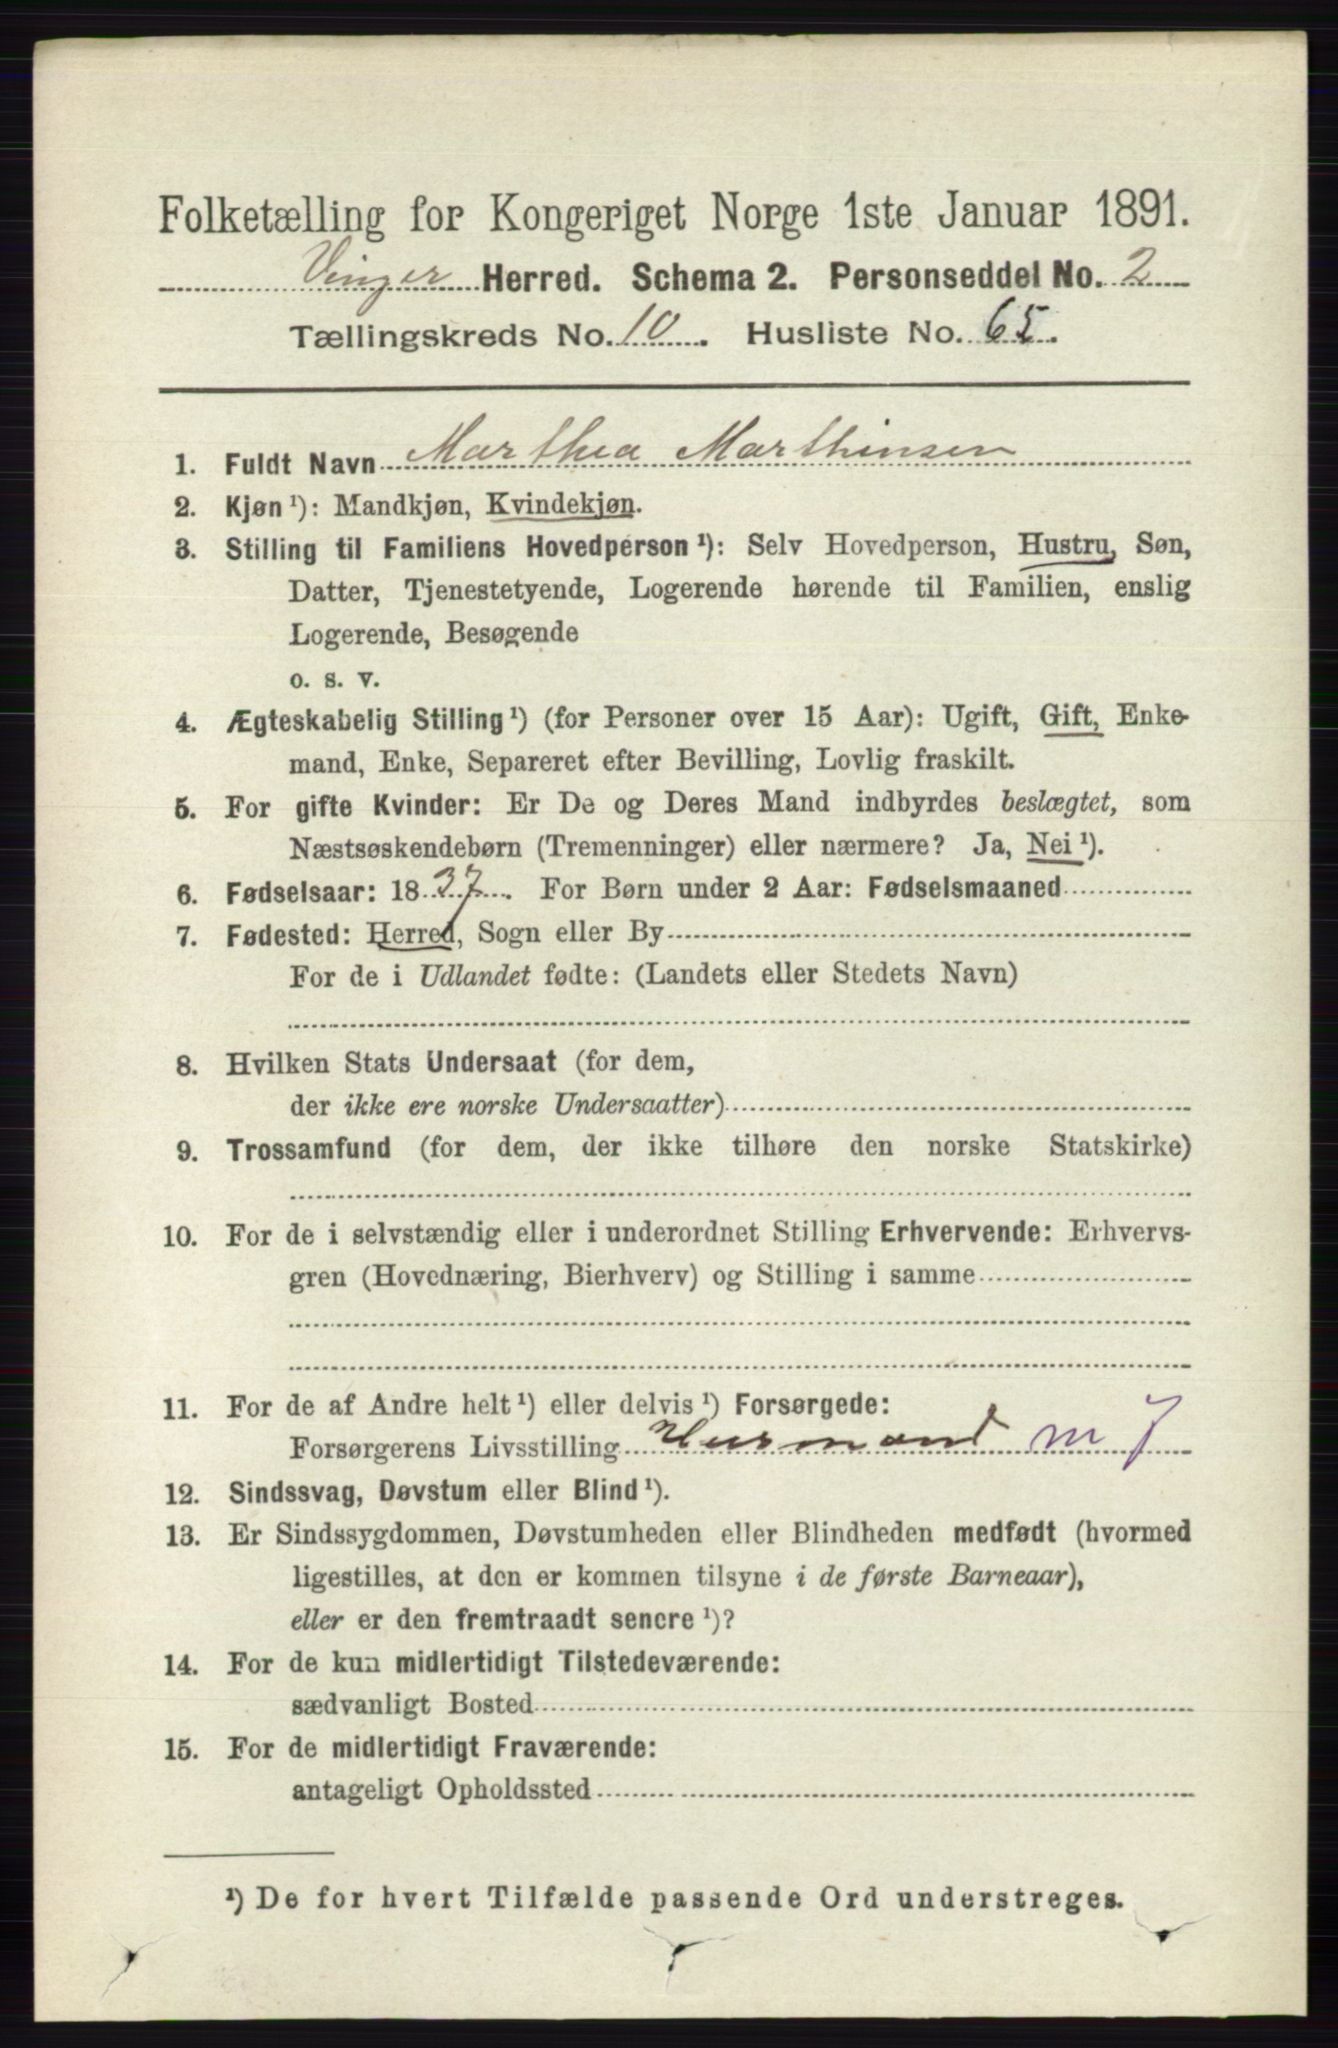 Folketælling for Kongeriget Norge 1ste Januar 1891.
Vinger Herred. Schema 2. Personseddel No. 2
Tællingskreds No. 10. Husliste No. 65.
1. Fuldt Navn Marthea Marthinsen
2. Kjøn ¹): Mandkjøn, Kvindekjøn.
3. Stilling til Familiens Hovedperson ¹): Selv Hovedperson, Hustru, Søn,
Datter, Tjenestetyende, Logerende hørende til Familien, enslig
Logerende, Besøgende
o. s. v.
4. Ægteskabelig Stilling ¹) (for Personer over 15 Aar): Ugift, Gift, Enke-
mand, Enke, Separeret efter Bevilling, Lovlig fraskilt.
5. For gifte Kvinder: Er De og Deres Mand indbyrdes beslægtet, som
Næstsøskendebørn (Tremenninger) eller nærmere? Ja, Nei ¹).
6. Fødselsaar: 1837. For Børn under 2 Aar: Fødselsmaaned
7. Fødested: Herred, Sogn eller By
For de i Udlandet fødte: (Landets eller Stedets Navn)
8. Hvilken Stats Undersaat (for dem,
der ikke ere norske Undersaatter)
9. Trossamfund (for dem, der ikke tilhøre den norske Statskirke)
10. For de i selvstændig eller i underordnet Stilling Erhvervende: Erhvervs-
gren (Hovednæring, Bierhverv) og Stilling i samme
11. For de af Andre helt ¹) eller delvis ¹) Forsørgede:
Forsørgerens Livsstilling Husmand m J
12. Sindssvag, Døvstum eller Blind ¹).
13. Er Sindssygdommen, Døvstumheden eller Blindheden medfødt (hvormed
ligestilles, at den er kommen tilsyne i de første Barneaar),
eller er den fremtraadt senere ¹)?
14. For de kun midlertidigt Tilstedeværende:
sædvanligt Bosted
15. For de midlertidigt Fraværende:
antageligt Opholdssted
¹) De for hvert Tilfælde passende Ord understreges.